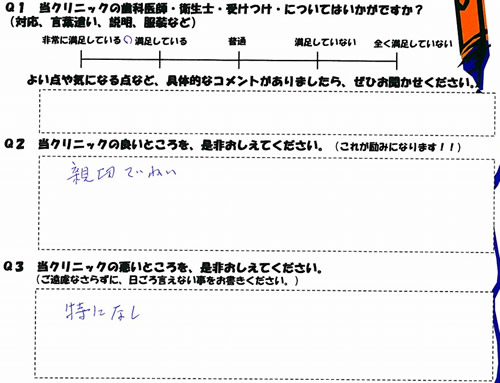 Q1 当クリニックの歯科医師・衛生士・受けつけ・についてはいかがですか？
(対応、言葉遣い、説明、服装など)
非常に満足している 満足している 普通 満足していない 全く満足していない
よい点や気になる点など、具体的なコメントがありましたら、ぜひお聞かせください。
Q2 当クリニックの良いところを、是非おしえてください。(これが励みになります！！)
親切でいねい
Q3 当クリニックの悪いところを、是非おしえてください。
(ご遠慮なさらずに、日ごろ言えない事をお書きください。)
特になし